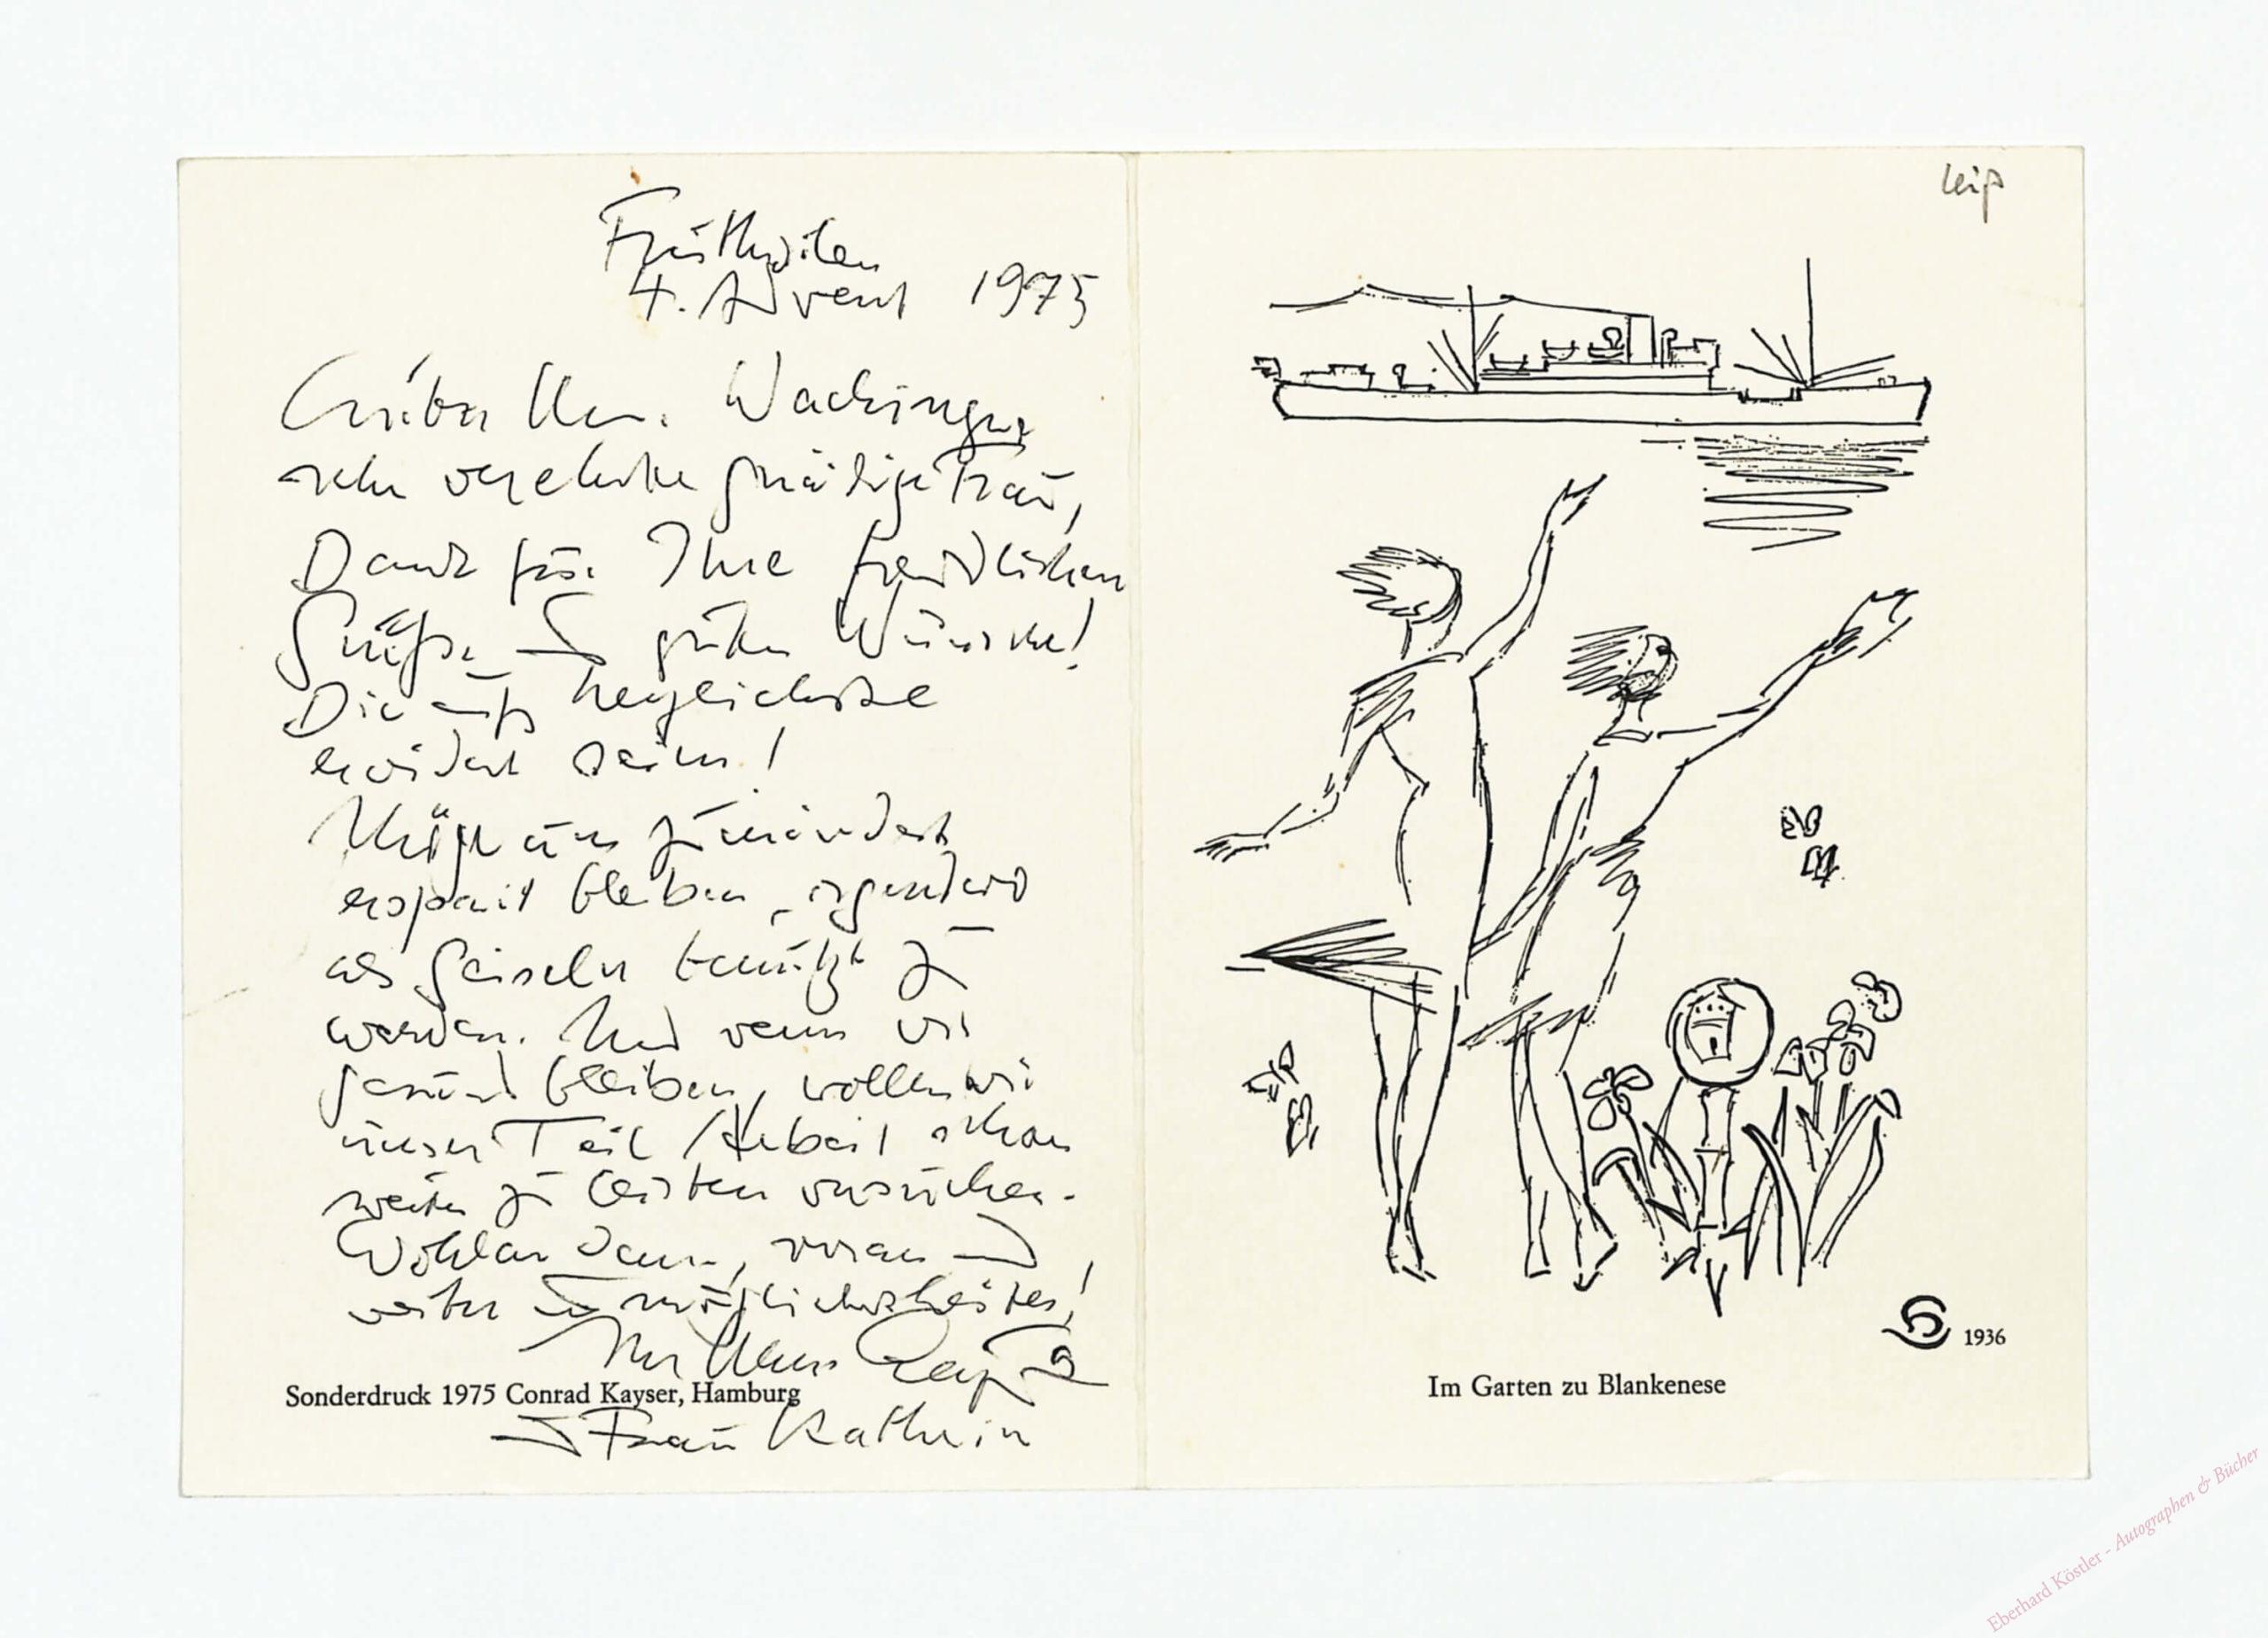 Fruthwilen
4. Advent 1975
Lieber Herr Wackinger
sehr verehrte gnädige Frau,
Dank für Ihre freundlichen
Grüße und guten Wünsche!
Die aufs herzlichste
erwidert seien!
Mög uns zumindest
erspart bleiben, irgendwo
als Geiseln benützt zu
werden. Und wenn wir
gesund bleiben, wollen wir
unser Teil Arbeit schon
weiter zu leisten versuchen.
Wohlan denn, voran und
weiter und möglichst heiter!
Ihr Hans Leip
Sonderdruck 1975 Conrad Kayser, Hamburg
und Frau Kathrin
Leip
1936
Im Garten zu Blankenese
Eberhard Köstler - Autographen & Bücher